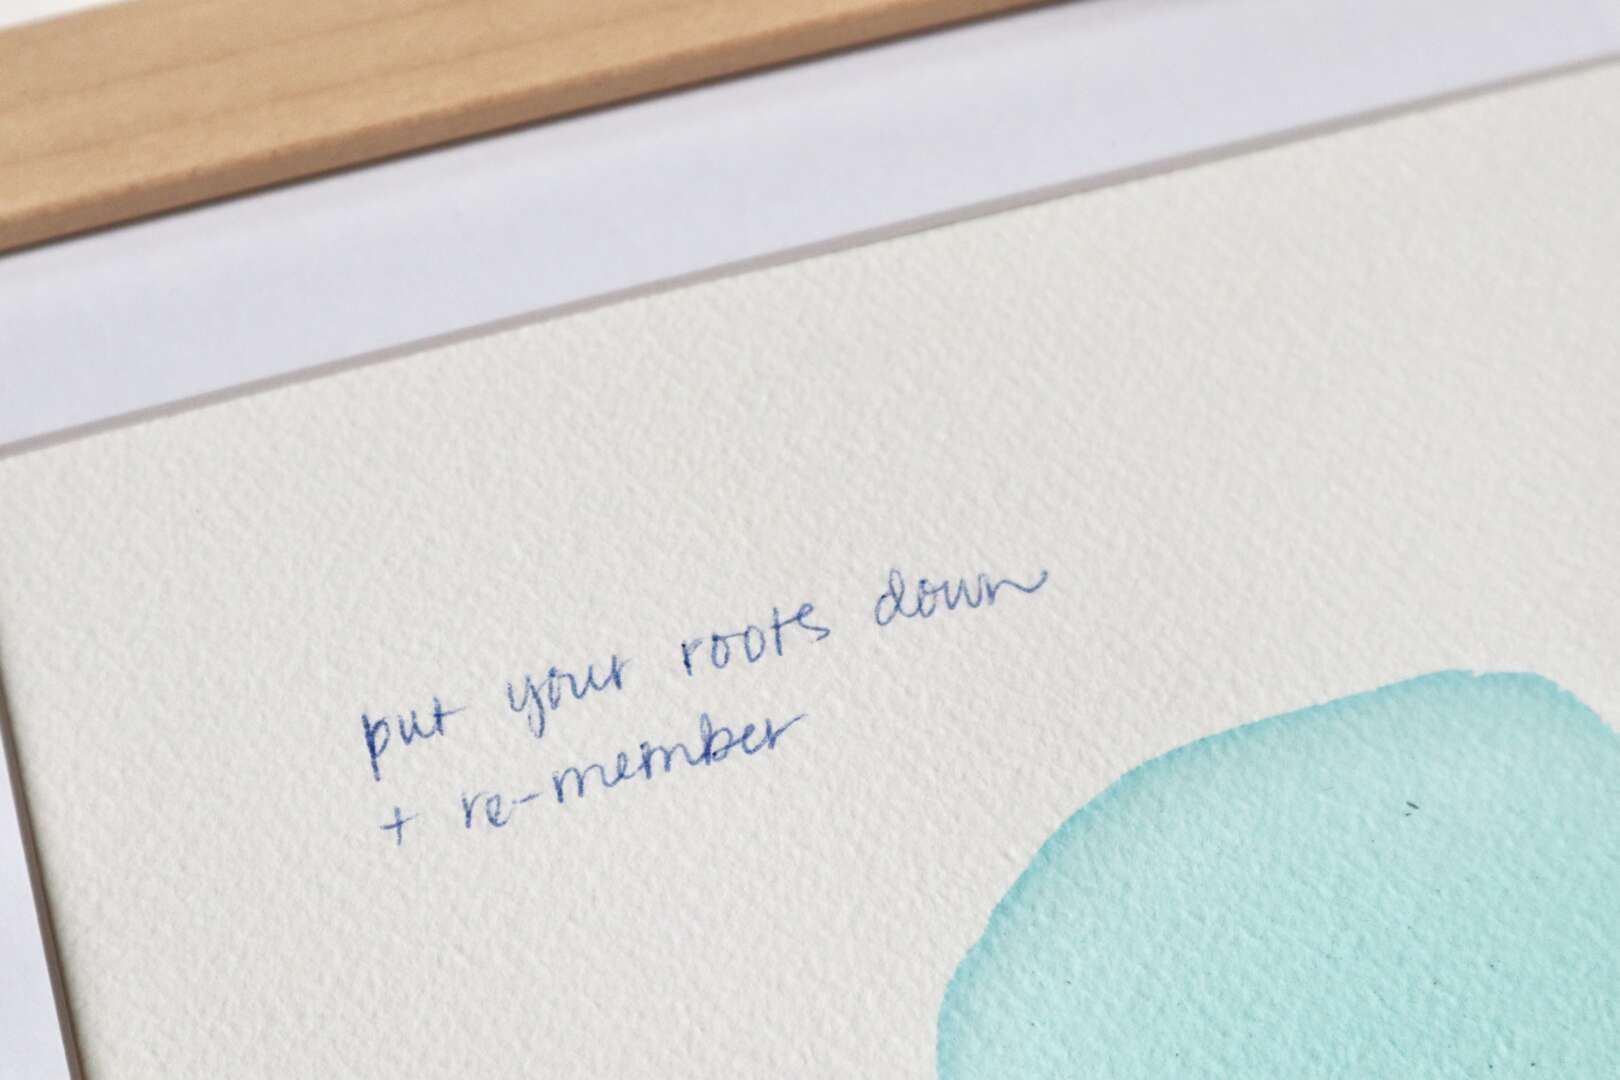 put your roots down
+ re-member